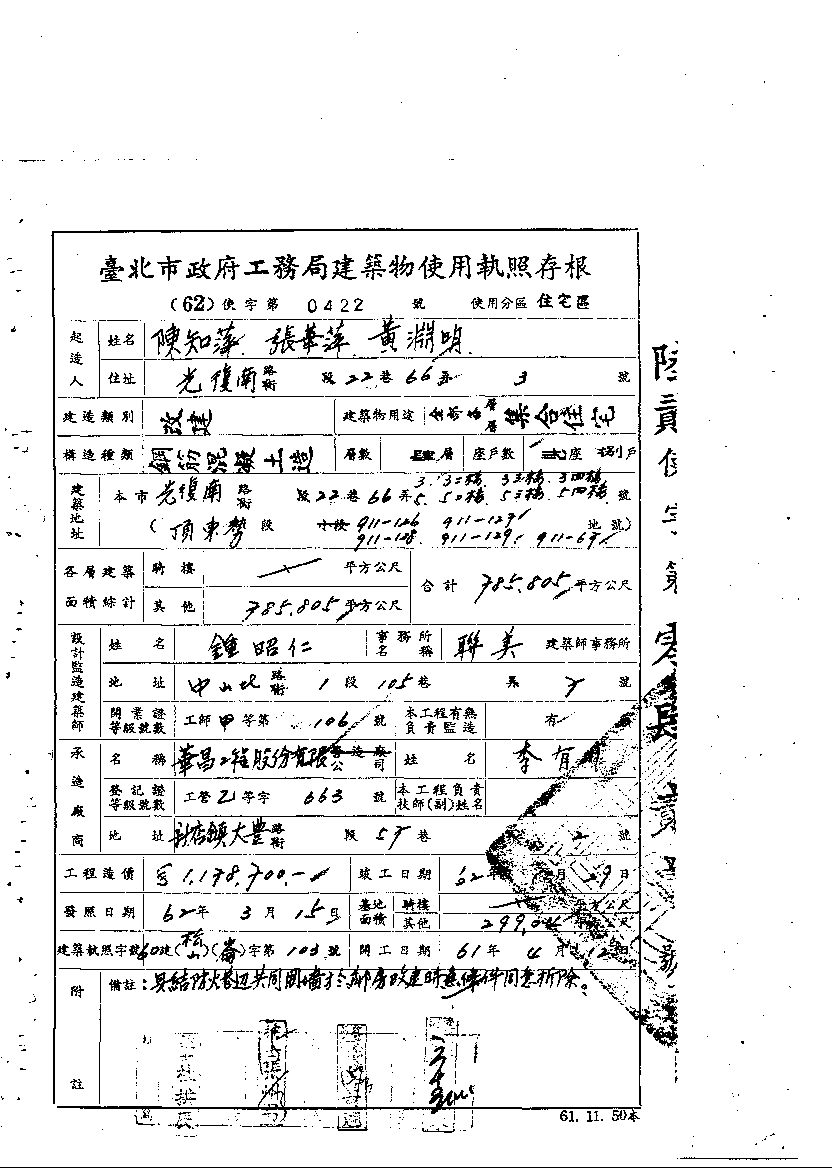 臺北市政府工務局建築物使用執照存根
(62)使字第 0422 號 使用分區 住宅區
起造人 姓名 陳知萍、張華萍、黃淵明
住址 光復南路街 段22巷66弄 3 號
建造類別 改建 建築物用途 層層集合住宅
構造種類 鋼筋混凝土造 層數 肆層 座戶數 座 捌戶
建築地址 本市光復南路街 段22巷66弄 3. 3二樓. 3三樓. 3四樓 5. 5二樓. 5三樓. 5四樓 號
(頂東勢段 小段 911-126 911-127 地號)
911-128. 911-129. 911-67
各層建築面積綜計 騎樓 平方公尺 合計 785.805平方公尺
其他 785.805平方公尺
設計監造建築師 姓名 鍾昭仁 事務所名稱 聯美 建築師事務所
地址 中山北路街 1段105巷 號
開業證等級號數 工師甲等第 106 號 本工程有無負責監造 有
承造廠商 名稱 華昌工程股份有限公司 姓名 李有
登記證等級號數 工營乙等字 663 號 本工程負責技師(副)姓名
地址 新店鎮大豐路街 段57巷 2 號
工程造價 $1,178,700.- 竣工日期 62年 月29日
發照日期 62年 3月 15日 基地面積 騎樓 平方公尺
其他 299.04 平方公尺
建築執照字號 60建(松山)(崙)字第 103 號 開工日期 61年 4月12日
附註 備註:具結防火巷边共同圍墻於鄰房改建時無條件同意拆除。
61. 11. 50本